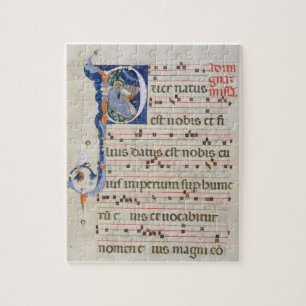 Puer natus
est nobis et fi
lius datus est nobis cu
ius imperium sup hume
rũ e ius et vocabitur
nomen e ius magni co